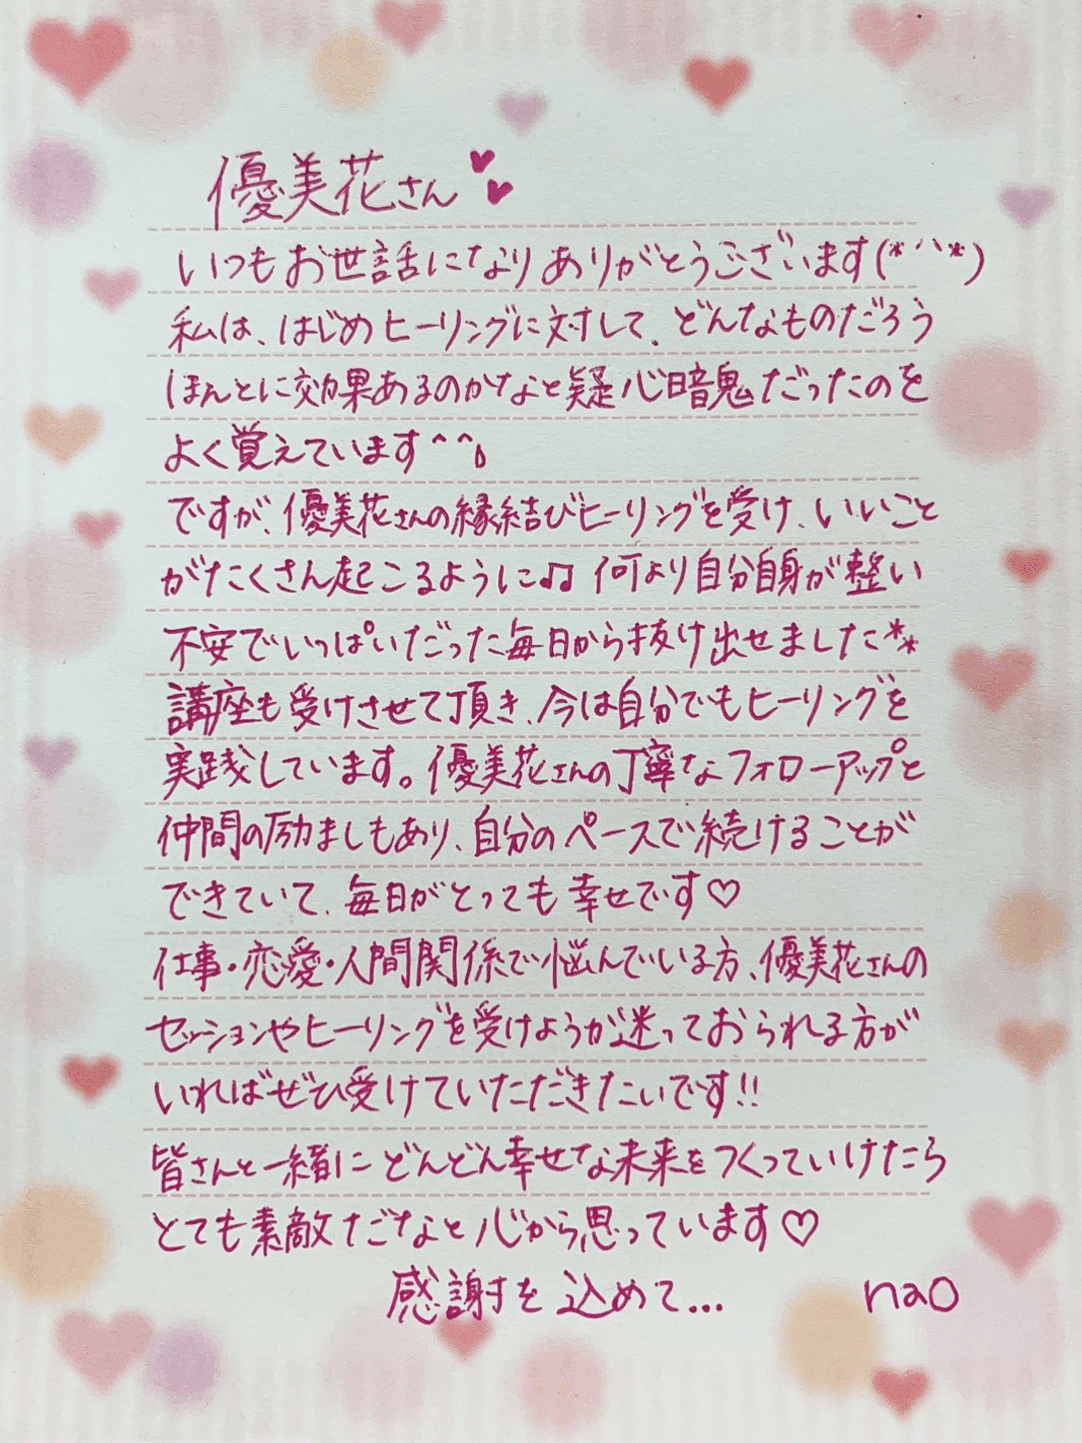 優美花さん
いつもお世話になりありがとうございます(*^^*)
私は、はじめヒーリングに対して、どんなものだろう
ほんとに効果あるのかなと疑心暗鬼だったのを
よく覚えています^^;
ですが、優美花さんの縁結びヒーリングを受け、いいこと
がたくさん起こるように♫ 何より自分自身が整い
不安でいっぱいだった毎日から抜け出せました**
講座も受けさせて頂き、今は自分でもヒーリングを
実践しています。優美花さんの丁寧なフォローアップと
仲間の励ましもあり、自分のペースで続けることが
できていて、毎日がとっても幸せです♡
仕事・恋愛・人間関係で悩んでいる方、優美花さんの
セッションやヒーリングを受けようか迷っておられる方が
いればぜひ受けていただきたいです!!
皆さんと一緒にどんどん幸せな未来をつくっていけたら
とても素敵だなと心から思っています♡
感謝を込めて... nao